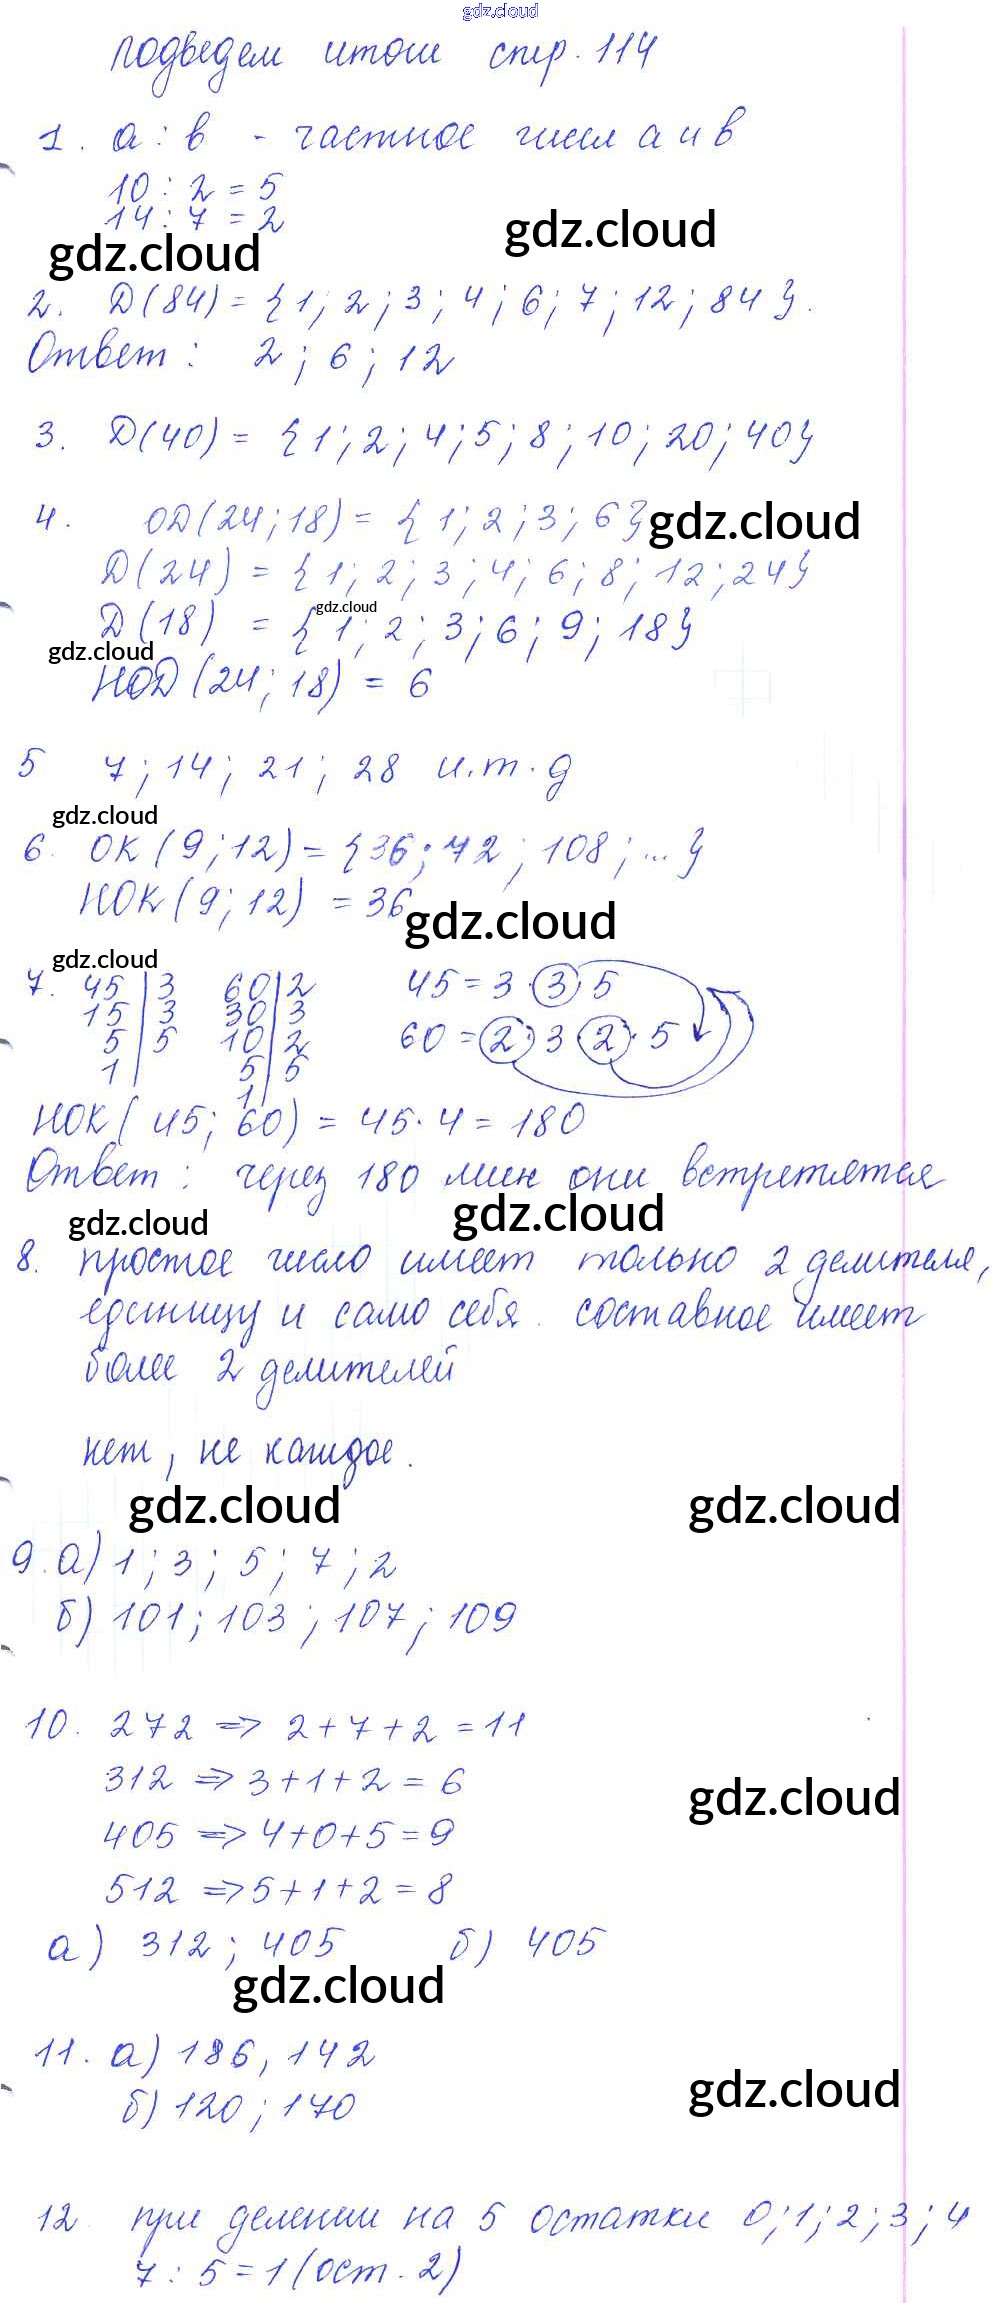 gdz.cloud
подведем итоги стр. 114
1. а : в - частное чисел а и в
10 : 2 = 5
14 : 7 = 2
gdz.cloud
gdz.cloud
2. D(84) = {1; 2; 3; 4; 6; 7; 12; 84}.
Ответ: 2; 6; 12
3. D(40) = {1; 2; 4; 5; 8; 10; 20; 40}
4. ОD(24; 18) = {1; 2; 3; 6}
gdz.cloud
D(24) = {1; 2; 3; 4; 6; 8; 12; 24}
gdz.cloud
D(18) = {1; 2; 3; 6; 9; 18}
gdz.cloud
НОD(24; 18) = 6
5 7; 14; 21; 28 и.т.д
gdz.cloud
6. ОК(9; 12) = {36; 72; 108; ...}
НОК(9; 12) = 36
gdz.cloud
gdz.cloud
7. 45 | 3 60 | 2 45 = 3 · 3 · 5
15 | 3 30 | 3
5 | 5 10 | 2 60 = 2 · 3 · 2 · 5
1 | 5 | 5
1
НОК(45; 60) = 45 · 4 = 180
Ответ: через 180 мин они встретятся
gdz.cloud
gdz.cloud
8. простое число имеет только 2 делителя,
единицу и само себя. составное имеет
более 2 делителей
нет, не каждое.
gdz.cloud
gdz.cloud
9. а) 1; 3; 5; 7; 2
б) 101; 103; 107; 109
10. 272 => 2+7+2 = 11
312 => 3+1+2 = 6
gdz.cloud
405 => 4+0+5 = 9
512 => 5+1+2 = 8
а) 312; 405 б) 405
gdz.cloud
11. а) 186, 142
gdz.cloud
б) 120; 170
12. при делении на 5 остатки 0; 1; 2; 3; 4
7 : 5 = 1 (ост. 2)